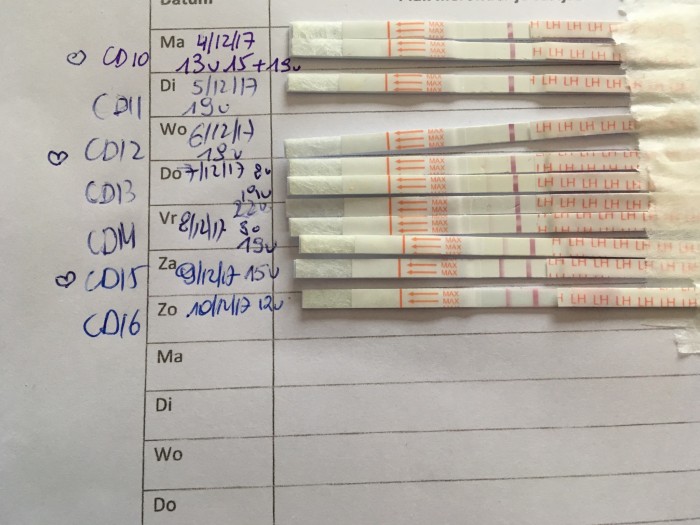 Datum
Ma 4/12/17
♡ CD10 13u 15 + 19u
Di 5/12/17
CD11 19u
Wo 6/12/17
♡ CD12 19u
Do 7/12/17 8u
CD13 19u
22u
Vr 8/12/17 8u
CD14 19u
Za 9/12/17 15u
♡ CD15
Zo 10/12/17 12u
CD16
Ma
Di
Wo
Do
MAX
MAX
MAX
LH LH LH LH